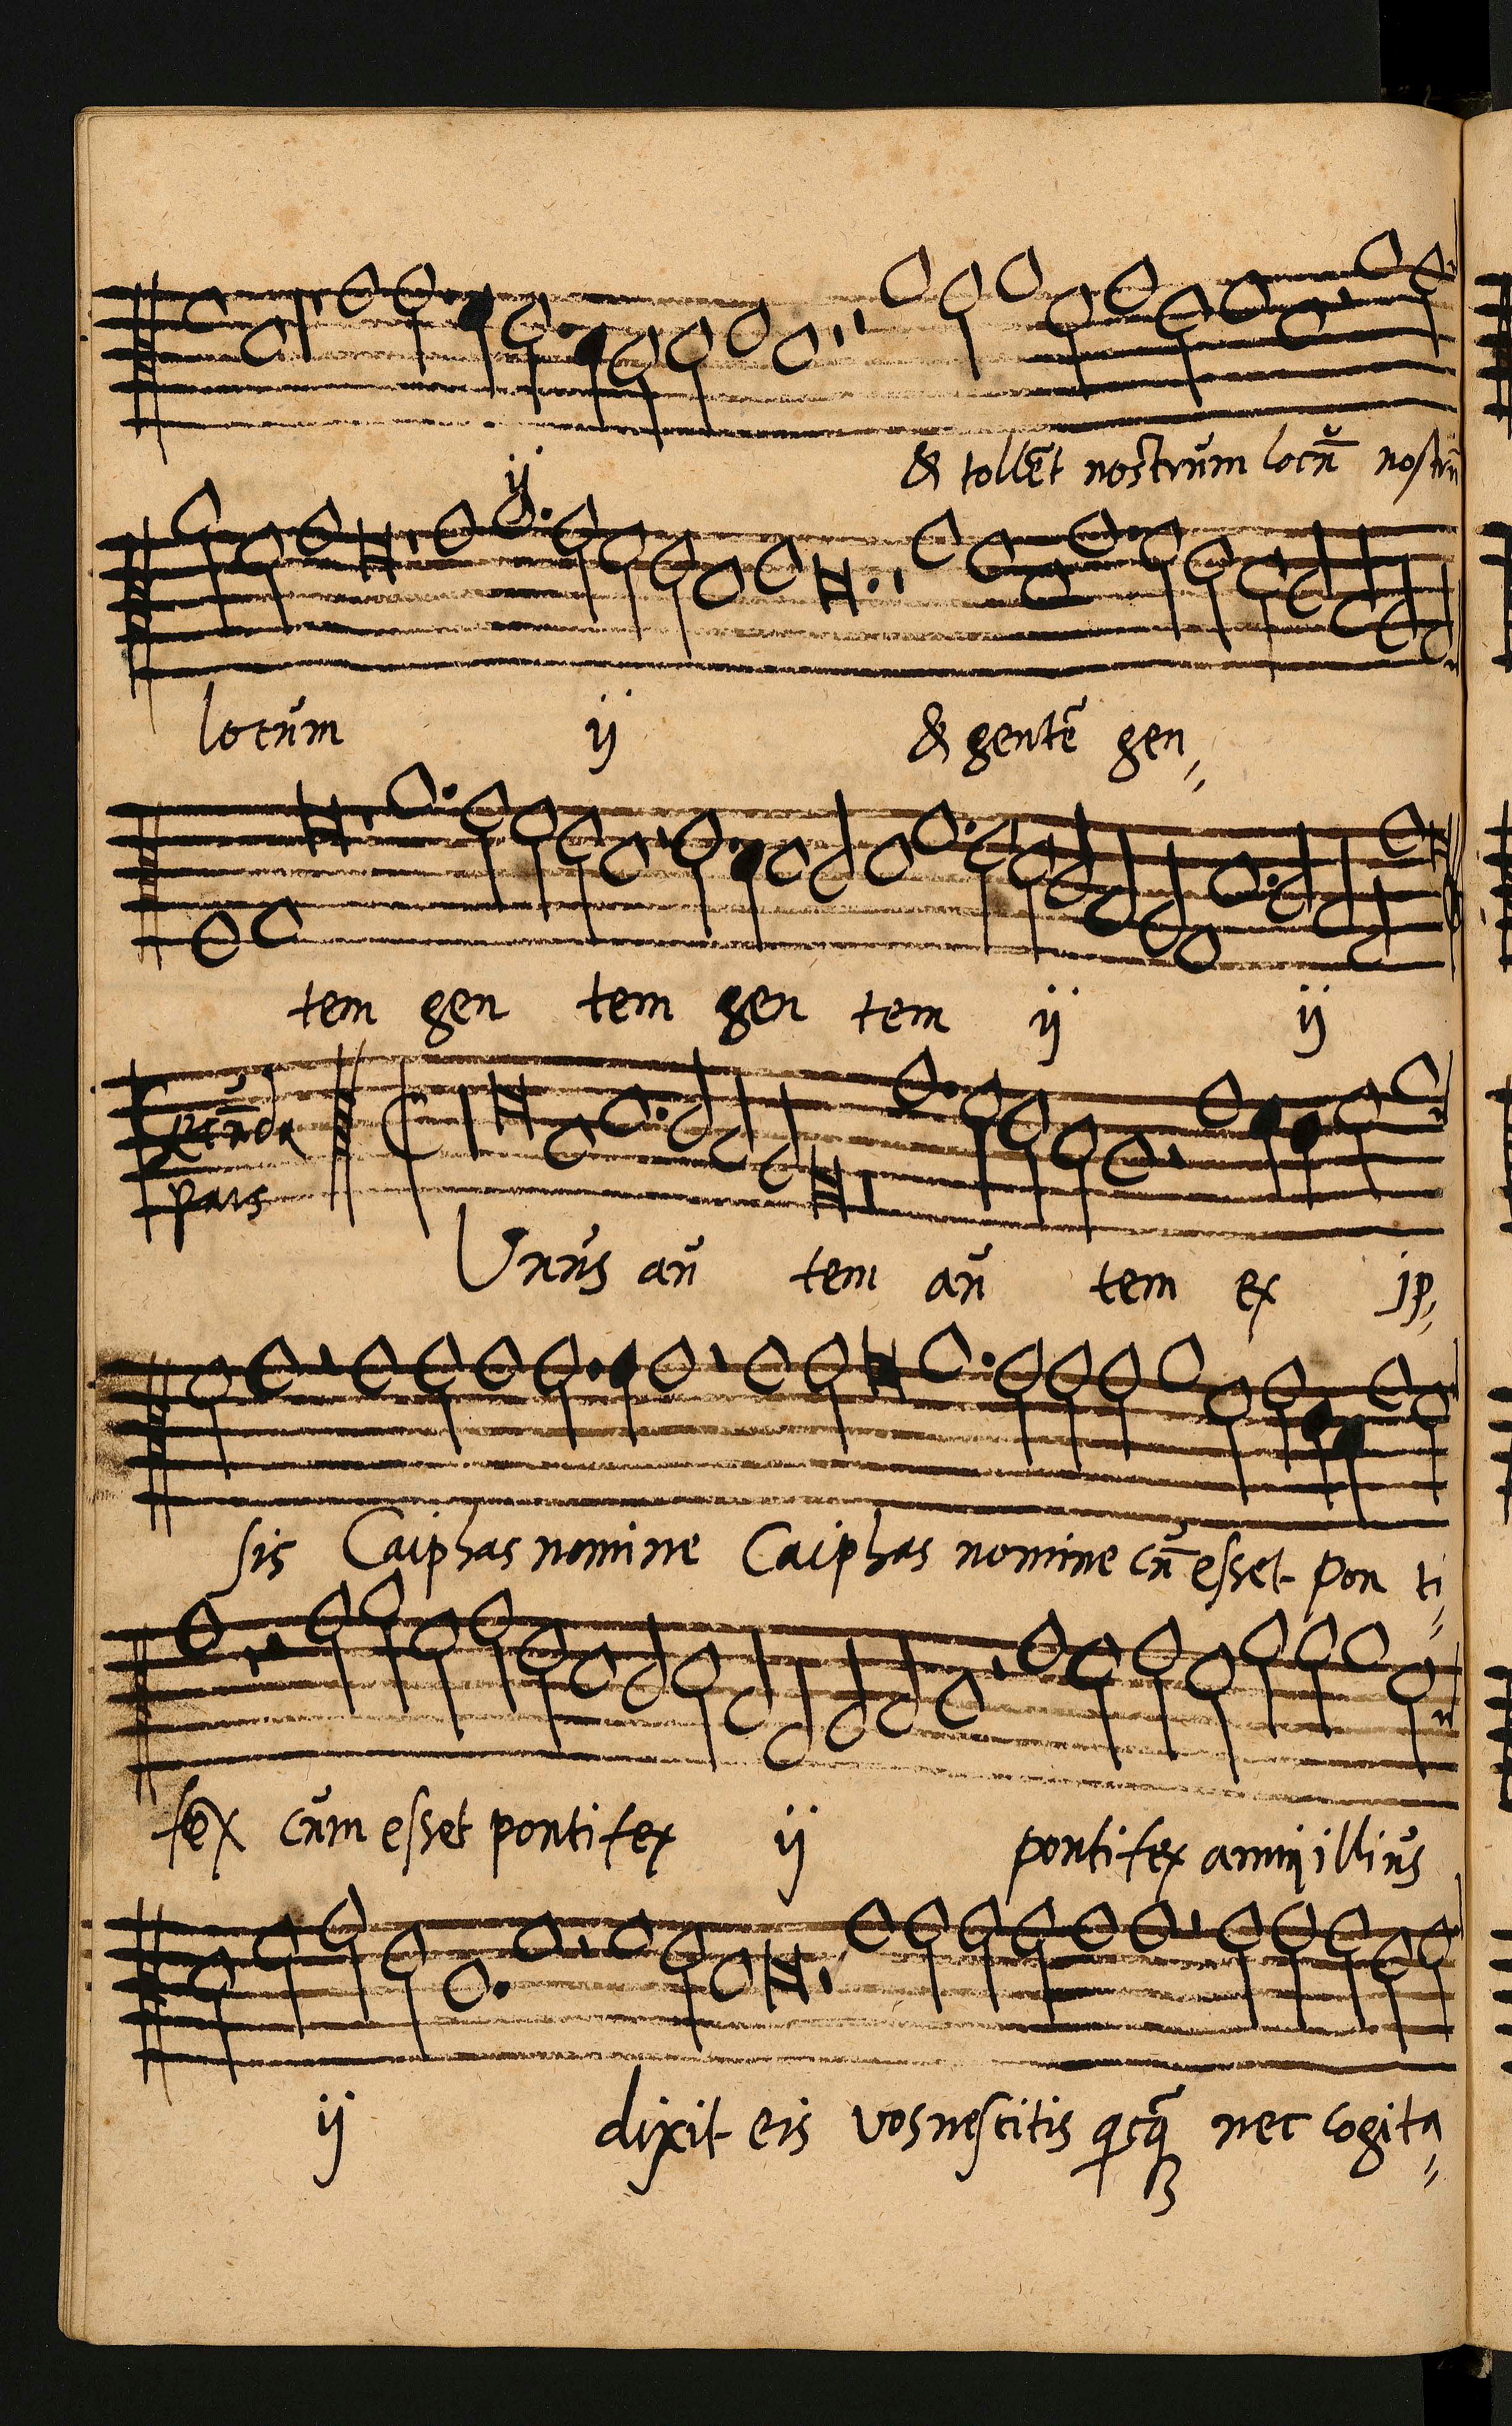 ij & tollēt nostrum locū nostrū
locum ij & gentē gen
tem gen tem gen tem ij ij
Secūda
pars
Unus au tem au tem ex ip
sis Caiphas nomine Caiphas nomine cū esset pon ti
fex cum esset pontifex ij pontifex anni illius
ij dixit eis vos nescitis nec cogita